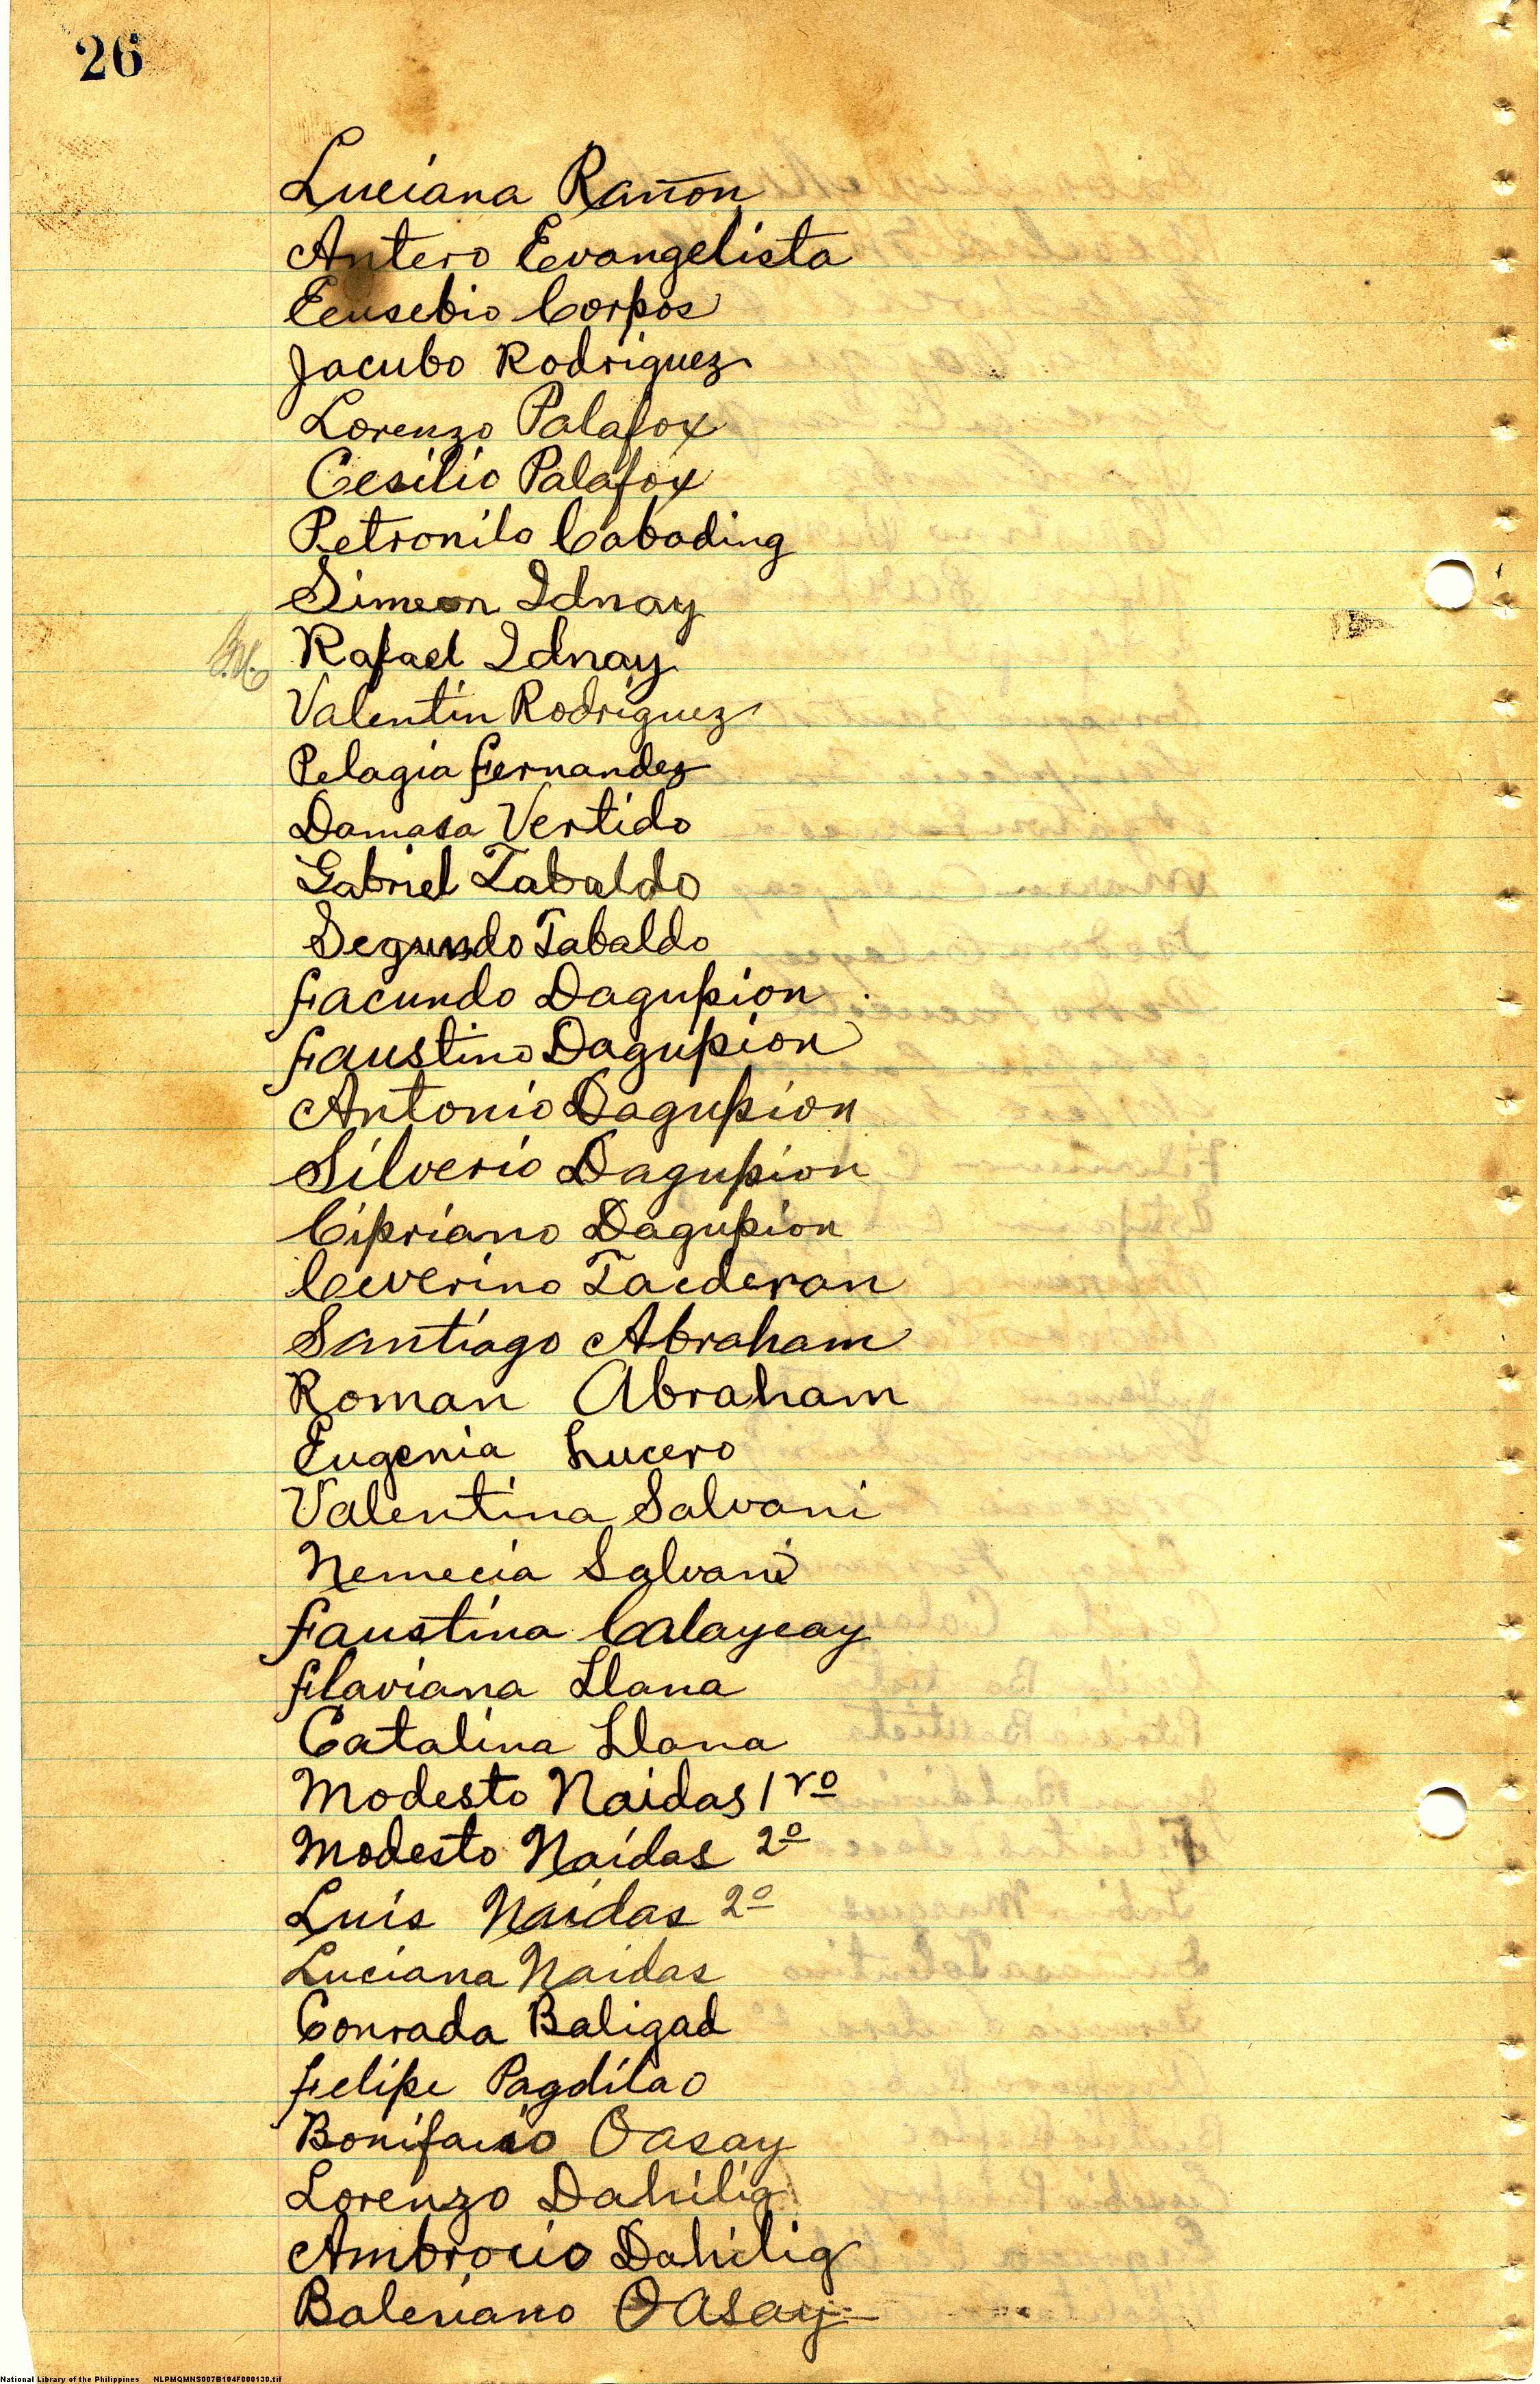 26
Luciana Rañon
Antero Evangelista
Eusebio Corpos
Jacubo Rodriguez
Lorenzo Palafox
Cesilio Palafox
Petronilo Cabading
Simeon Idnay
Rafael Idnay
Valentin Rodriguez
Pelagia Fernandez
Damasa Vertido
Gabriel Tabaldo
Segundo Tabaldo
Facundo Dagupion
Faustino Dagupion
Antonio Dagupion
Silverio Dagupion
Cipriano Dagupion
Ceverino Tacderan
Santiago Abraham
Roman Abraham
Eugenia Lucero
Valentina Salvani
Nemecia Salvani
Faustina Calaycay
Flaviana Llana
Catalina Llana
Modesto Naidas 1ro
Modesto Naidas 2º
Luis Naidas 2º
Luciana Naidas
Conrada Baligad
Felipe Pagdilao
Bonifacio Oasay
Lorenzo Dahilig
Ambrocio Dahilig
Baleriano Oasay
National Library of the Philippines NLPMQMNS007B104F000130.tif